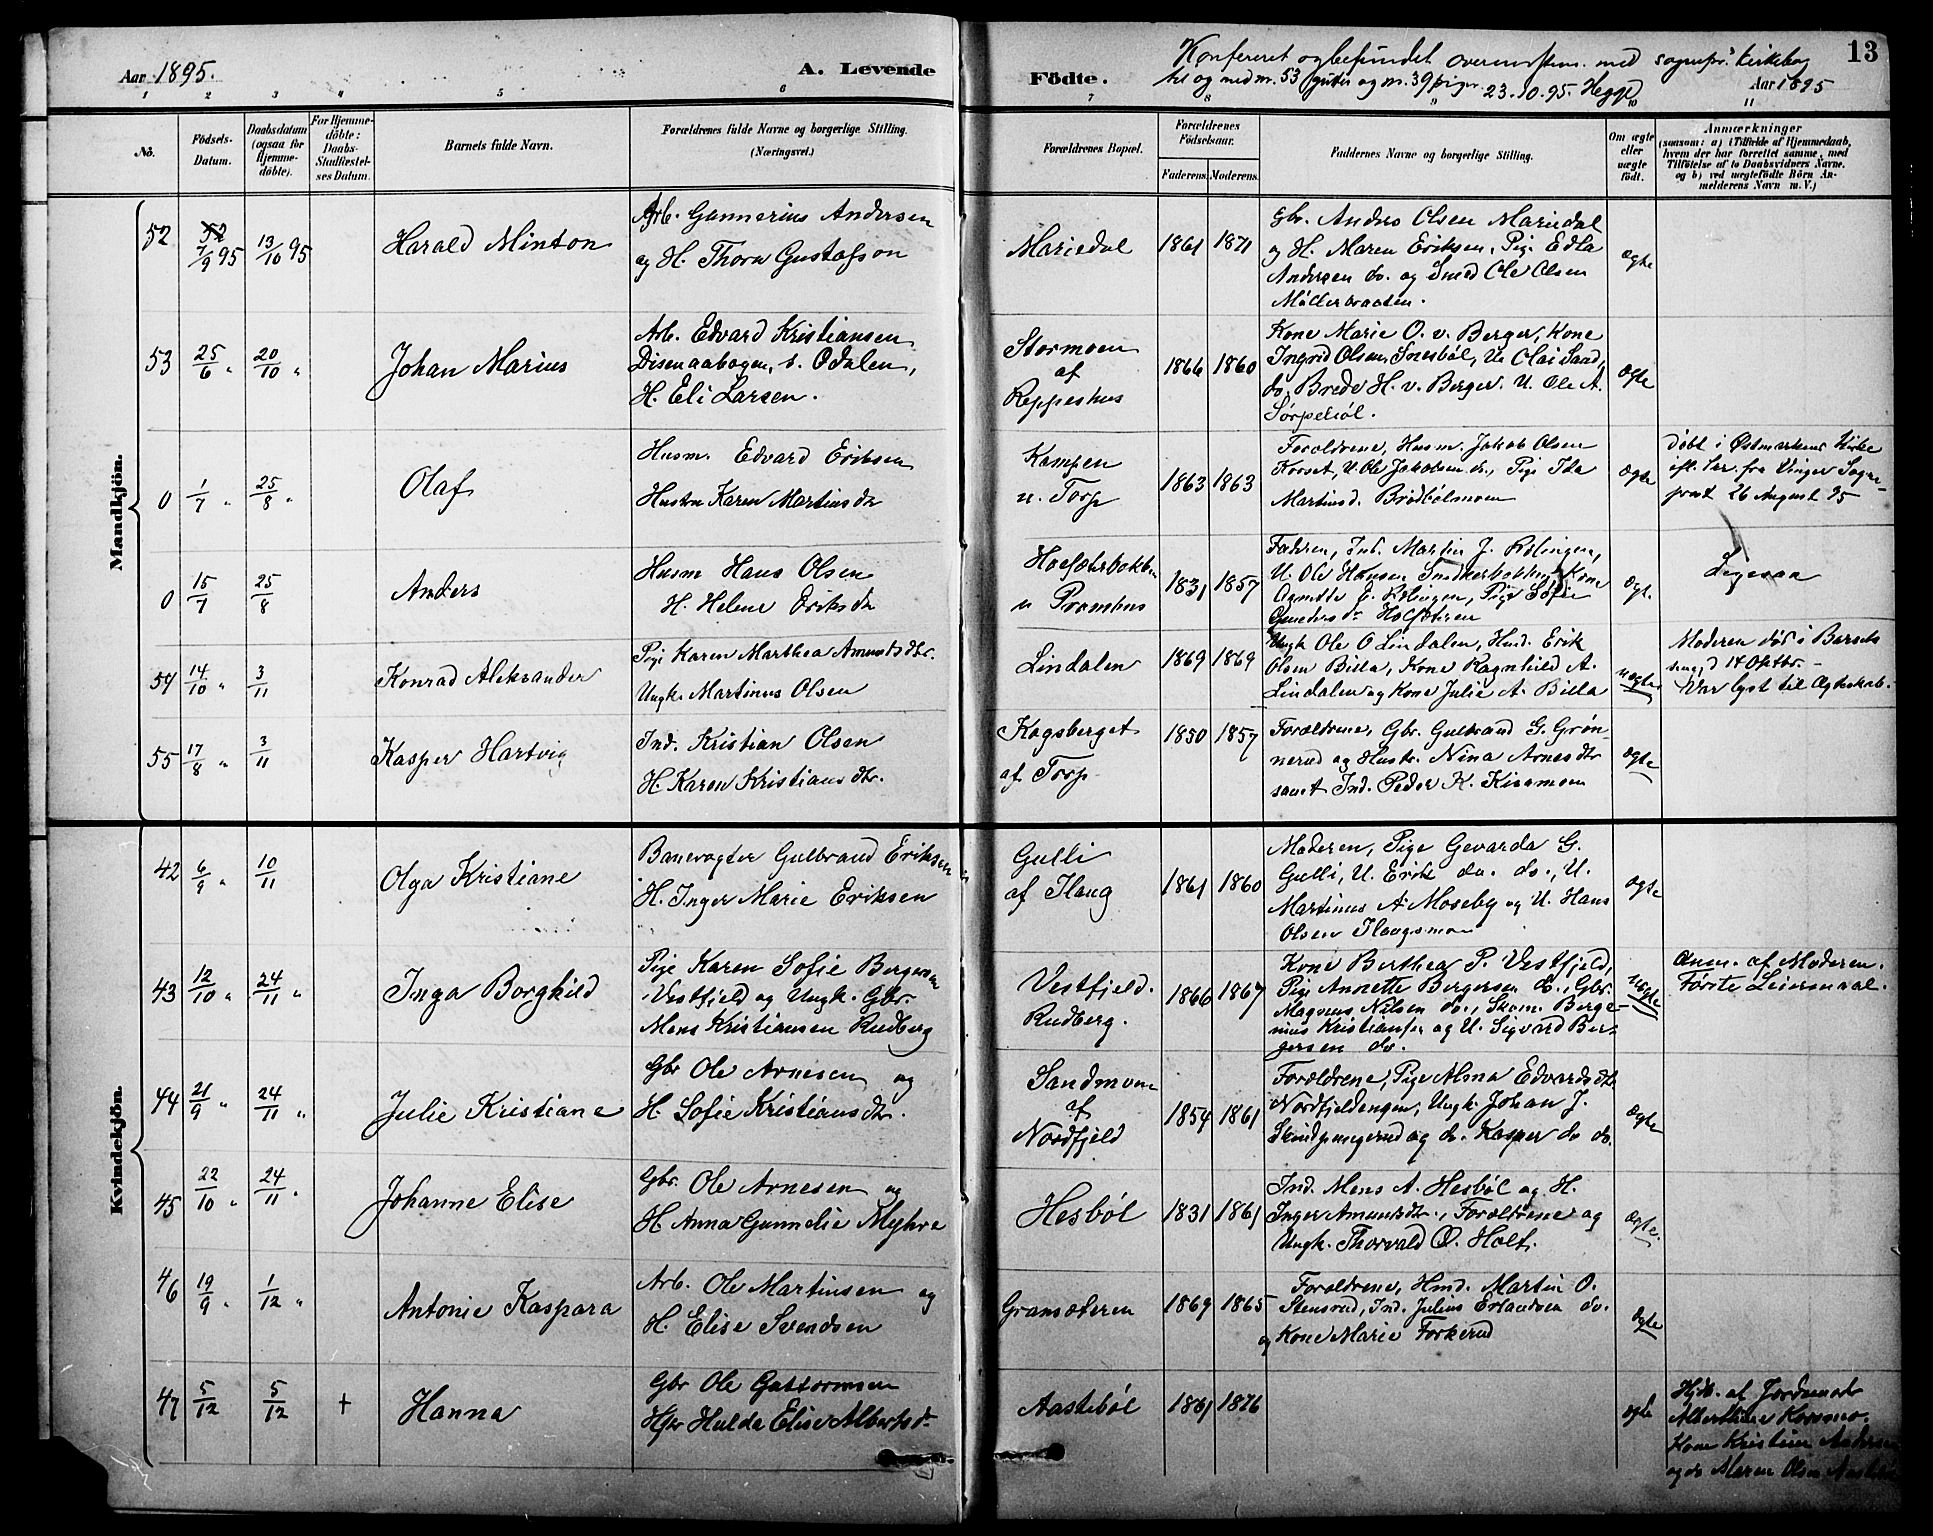 Aar 1895.
A. Levende
1 2 3 4 5 6
Nô.
Födsels-
Datum.
Daabsdatum
(ogsaa for
Hjemme-
döbte).
For Hjemme-
döbte:
Daabs-
Stadfæstel-
ses Datum.
Barnets fulde Navn.
Forældrenes fulde Navne og borgerlige Stilling.
(Næringsvei.)
Mandkjön.
52 7/9 95 13/10 95 Harald Minton
Arb. Gunnerius Andersen
og H. Thora Gustafson
53 25/6 " 20/10 " Johan Marius
Arb. Edvard Kristiansen
Disenaabogen, s. Odalen,
H. Eli Larsen.
0 1/7 " 25/8 " Olaf
Husm. Edvard Eriksen
Hustru Karen Martinsdtr
0 15/7 25/8 Anders
Husm Hans Olsen
H. Helene Eriksdtr
54 14/10 " 3/11 Konrad Aleksander
Pige Karen Marthea Amundsdtr.
Ungk. Martinus Olsen
55 17/8 " 3/11 Kasper Hartvig
Ind. Kristian Olsen
H. Karen Kristiansdtr.
Kvindekjön.
42 6/9 " 10/11 Olga Kristiane
Banevogter Gulbrand Eriksen
H. Inger Marie Eriksen
43 12/10 " 24/11 " Inga Borghild
Pige Karen Sofie Bergersen
Vestfjeld og Ungk. Gbr.
Mons Kristiansen Rudberg
44 21/9 " 24/11 " Julie Kristiane
Gbr Ole Arnesen og
H. Sofie Kristiansdtr.
45 22/10 " 24/11 " Johanne Elise
Gbr. Ole Arnesen og
H. Anna Gunnelie Myhre
46 19/9 " 1/12 " Antonie Kaspara
Arb. Ole Martinsen og
H. Elise Svendsen
47 5/12 5/12 + Hanna
Gbr Ole Guttormsen
Hjr Hulda Elise Albertsdtr
Födte.
Konfereret og befundet overensstem. med sognepr. Kirkebog
til og med nr. 53 gutter og nr. 39 piger 23.10.95. Hegge
13
Aar 1895
7 8 9 10 11
Forældrenes Bopæl.
Forældrenes
Födselsaar.
Faderens. Moderens.
Faddernes Navne og borgerlige Stilling.
Om ægte
eller
uægte
födt.
Anmærkninger
(saasom: a) i Tilfælde af Hjemmedaab,
hvem der har forrettet samme, med
Tilföielse af to Daabsvidners Navne.
og b) ved uægtefödte Börn An-
melderens Navn m. V.)
Mariedal 1861 1871
Gbr. Andrs Olsen Mariedal
og H. Maren Eriksen, Pige Edla
Andersen do. og Smed Ole Olsen
Möllerbraaten.
ægte
Stormoen
af
Reppeshus
1866 1860
Kone Marie O. v. Berger, Kone
Ingrid Olsen Snesböl, U. Olai Sand,
do. Brede H. v. Berger. U. Ole A.
ægte
Kampen
u. Torp
1863 1863
Foraldrene, Husm. Jakob Olsen
Korset, U. Ole Jakobsen do., Pige Ida
Martinsd. Brödbölmoen
ægte
döbt i Østmarkens Kirke
ifl. Skr. fra Vinger Sogne-
prest 26 August 95
u Pramhus
1831 1857
Faderen, Ind. Martin J. Rölingen,
U. Ole Hansen
Pige Sofie
ægt.
Ligesaa
Lindalen 1869 1869
Ungk Ole O Lindalen, Husm. Erik
Olsen Billa, Kone Ragnhild A.
Lindalen og Kone Julie A. Billa
uægte
Moderen död i Barsels
seng d 14 Oktbr. -
Var lyst til Ægteskab.
Kagsberget
af Torp
1850 1857
Foraldrene, Gbr. Gulbrand G. Grön-
nerud og Hustr. Nina Arnesdtr
samt Ind. Peder K. Kisamoen
ægte
Gulli
af Ilaug
1861 1860
Moderen, Pige Gevarda G.
Gulli, U. Erik do. do., U.
Martinus A. Moseby og U. Hans
Olsen Ilaugsmoen
ægte
Vestfjeld.
Rudberg.
1866 1867
Kone Berthea P. Vestfjeld,
Pige Annette Bergersen do., Gbr.
Magnus Nilsen do., Skom. Berge-
nius Kristiansen og U. Sigvard Ber-
gersen do.
uægte
Anm. af Moderen.
Förste Leiermaal.
Sandmoen
af
Nordfjeld
1854 1861
Forældrene, Pige Alma Edvardsdtr
Nordfjeldengen, Ungk. Johan J.
Skindpungerud og do. Kasper do do.
ægte
Hesböl 1831 1861
Ind. Mons A. Hesböl og H.
Inger Amundsdtr., Forældrene og
Ungk. Thorvald O. Holt.
ægte.
Gransæteren 1869 1865
Foraldrene, Hmd. Martin O.
Stensrud, Ind. Julius Erlandsen do.
og Kone Marie Forkerud
ægte
Aasteböl 1861 1876
ægte
Hjd. af Jordemod.
Albertine Korsmo.
Kone Kristine Andersen
og do Maren Olsen